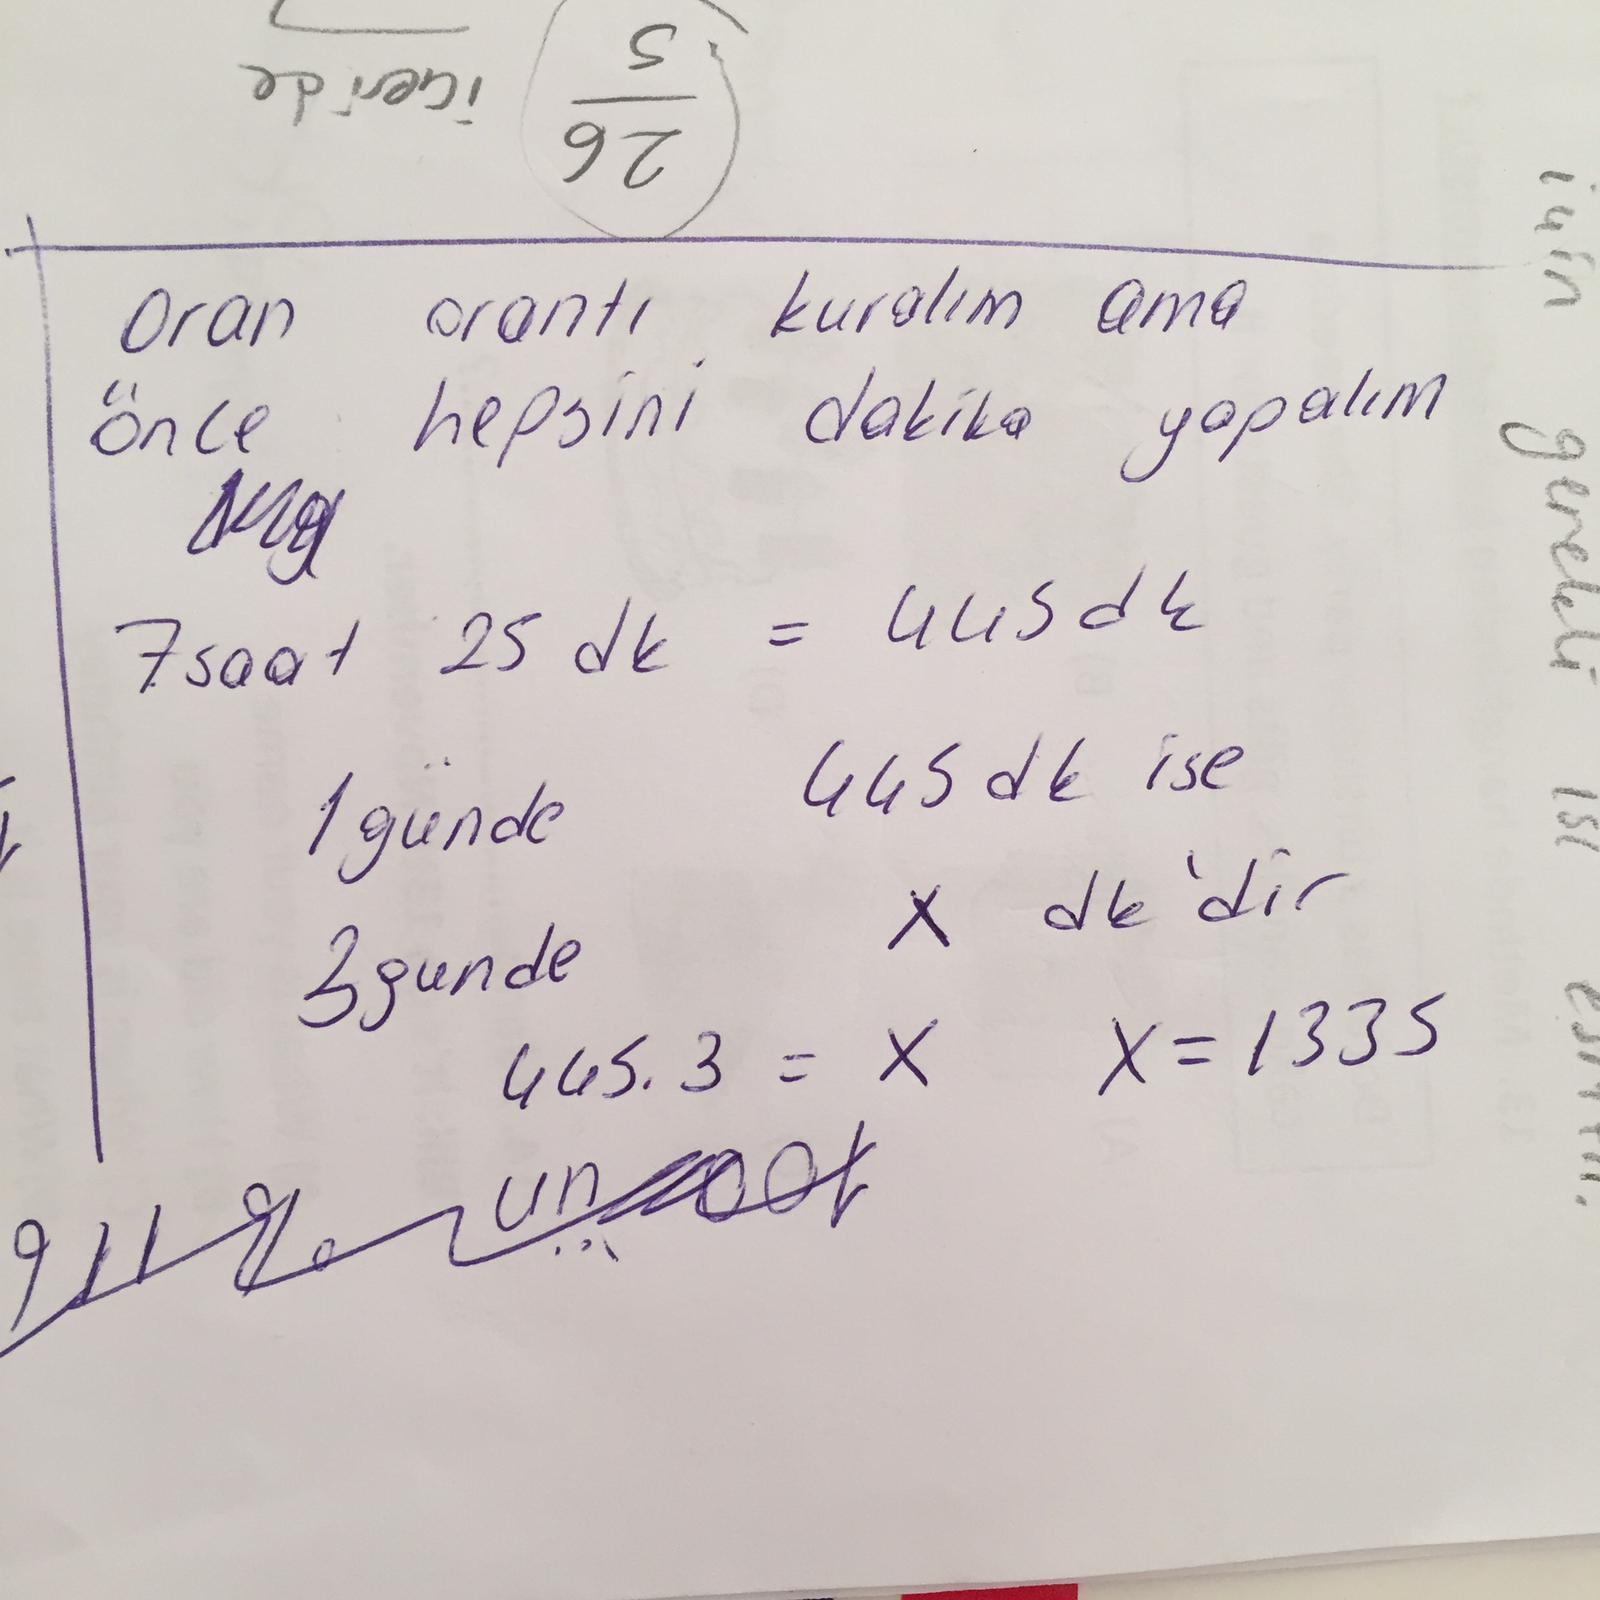 26
5
içeride
Oran orantı kuralım ama
önce hepsini dakika yapalım
7saat 25 dk = 445dk
1günde 445dk ise
3gunde x dk'dir
445.3 = x x=1335
için gerekli ısı